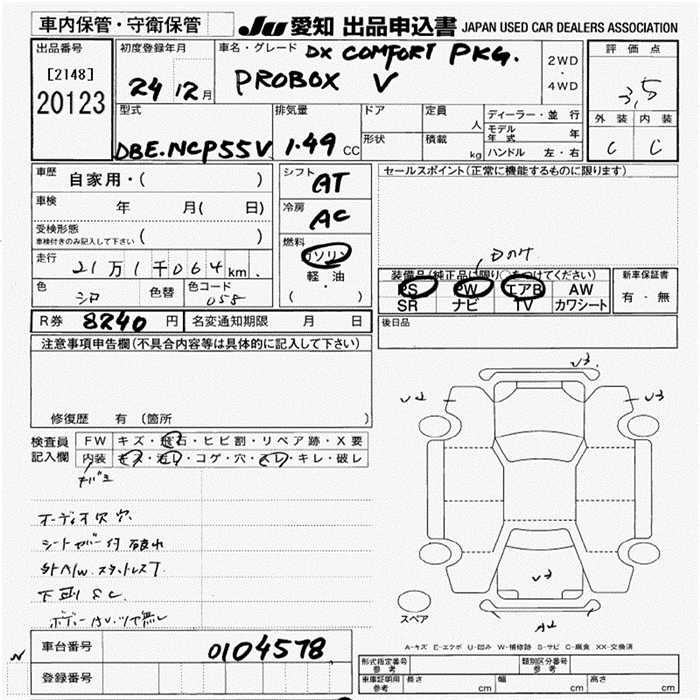 車内保管・守衛保管
JU 愛知 出品申込書 JAPAN USED CAR DEALERS ASSOCIATION
出品番号
[2148]
20123
初度登録年月
24 12月
車名・グレード DX COMFORT PKG.
PROBOX V
2WD
・
4WD
評価点
3,5
外装 内装
C C
型式
DBE.NCP55V
排気量
1.49 CC
ドア
形状
定員
人
積載
kg
ディーラー・並行
モデル年式 年
ハンドル 左・右
車歴
自家用・( )
車検
年 月( 日)
受検形態
車検付きのみ記入して下さい ( )
走行
21万1千064km.
色
シロ
色替
色コード
058
シフト
AT
冷房
AC
燃料
ガソリン
軽・油
( ・ )
セールスポイント(正常に機能するものに限ります)
装備品(純正品に限り○をつけてください)
PS PW エアB AW
SR ナビ TV カワシート
新車保証書
有・無
後日品
R券 8240 円
名変通知期限 月 日
注意事項申告欄(不具合内容等は具体的に記入して下さい)
修復歴 有 (箇所 )
検査員
記入欄
FW キズ・飛石・ヒビ割・リペア跡・X要
内装 キズ・汚れ・コゲ・穴・スレ・キレ・破レ
オーディオ欠 穴
シートカバー付 破れ
外A/W.スタットレス7.
下廻りS.C.
U3.
U2
U3
U3
A2
スペア
A-キズ E-エクボ U-凹み W-補修跡 S-サビ C-腐食 XX-交換済
車台番号
0104578
登録番号
形式指定番号
参考
類別区分番号
参考
車庫証明用
参考
長さ cm
幅 cm
高さ cm